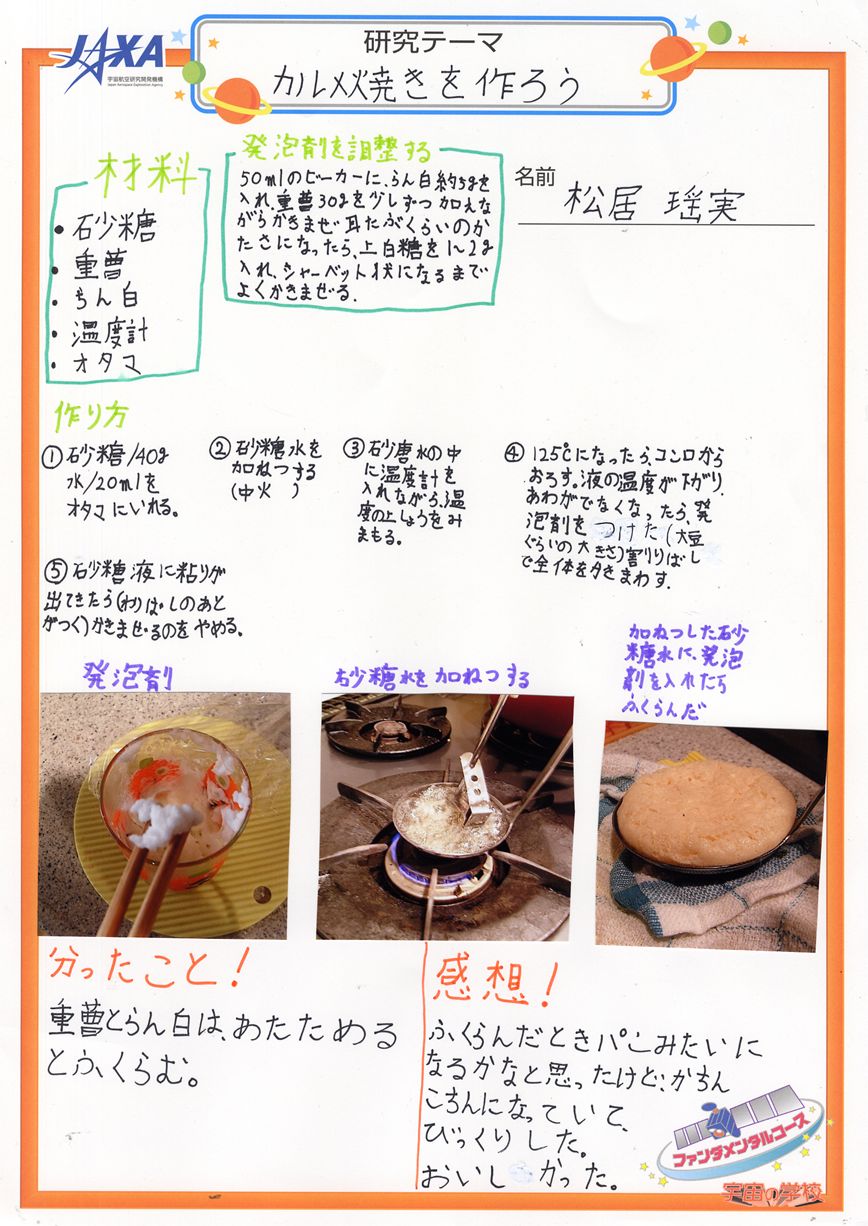 JAXA
宇宙航空研究開発機構
Japan Aerospace Exploration Agency
研究テーマ
カルメ焼きを作ろう
名前
松居 瑶実
材料
・砂糖
・重曹
・らん白
・温度計
・オタマ
発泡剤を調整する
50mlのビーカーに、らん白約5gを
入れ、重曹30gを少しずつ加えな
がらかきまぜ耳たぶくらいのか
たさになったら、上白糖を1〜2g
入れ、シャーベット状になるまで
よくかきまぜる.
作り方
①砂糖/40g
水/20mlを
オタマにいれる。
②砂糖水を
加ねつする
(中火 )
③砂唐水の中
に温度計を
入れながら、温
度の上しょうをみ
まもる。
④125℃になったら、コンロから
おろす。液の温度が下がり、
あわがでなくなったら、発
泡剤をつけた(大豆
ぐらいの大きさ)割りばし
で全体をかきまわす.
⑤砂糖液に粘りが
出てきたら(わりばしのあと
がつく)かきまぜるのをやめる。
発泡剤
砂糖水を加ねつする
加ねつした砂
糖水に、発泡
剤を入れたら
ふくらんだ
分ったこと!
重曹とらん白は、あたためる
とふくらむ。
感想!
ふくらんだときパンみたいに
なるかなと思ったけど、かちん
こちんになっていて、
びっくりした。
おいしかった。
ファンダメンタルコース
宇宙の学校